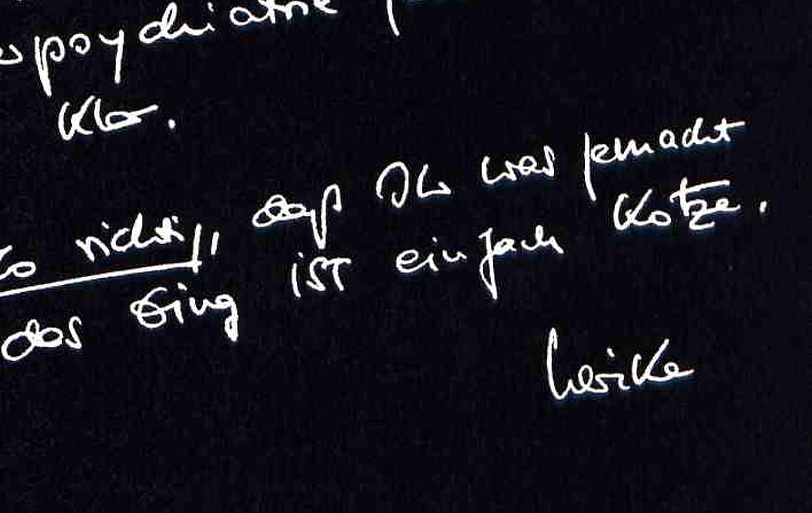 psychiatrie
Klo.
richtig, daß Ihr was gemacht
das Ding ist einfach Kotze.